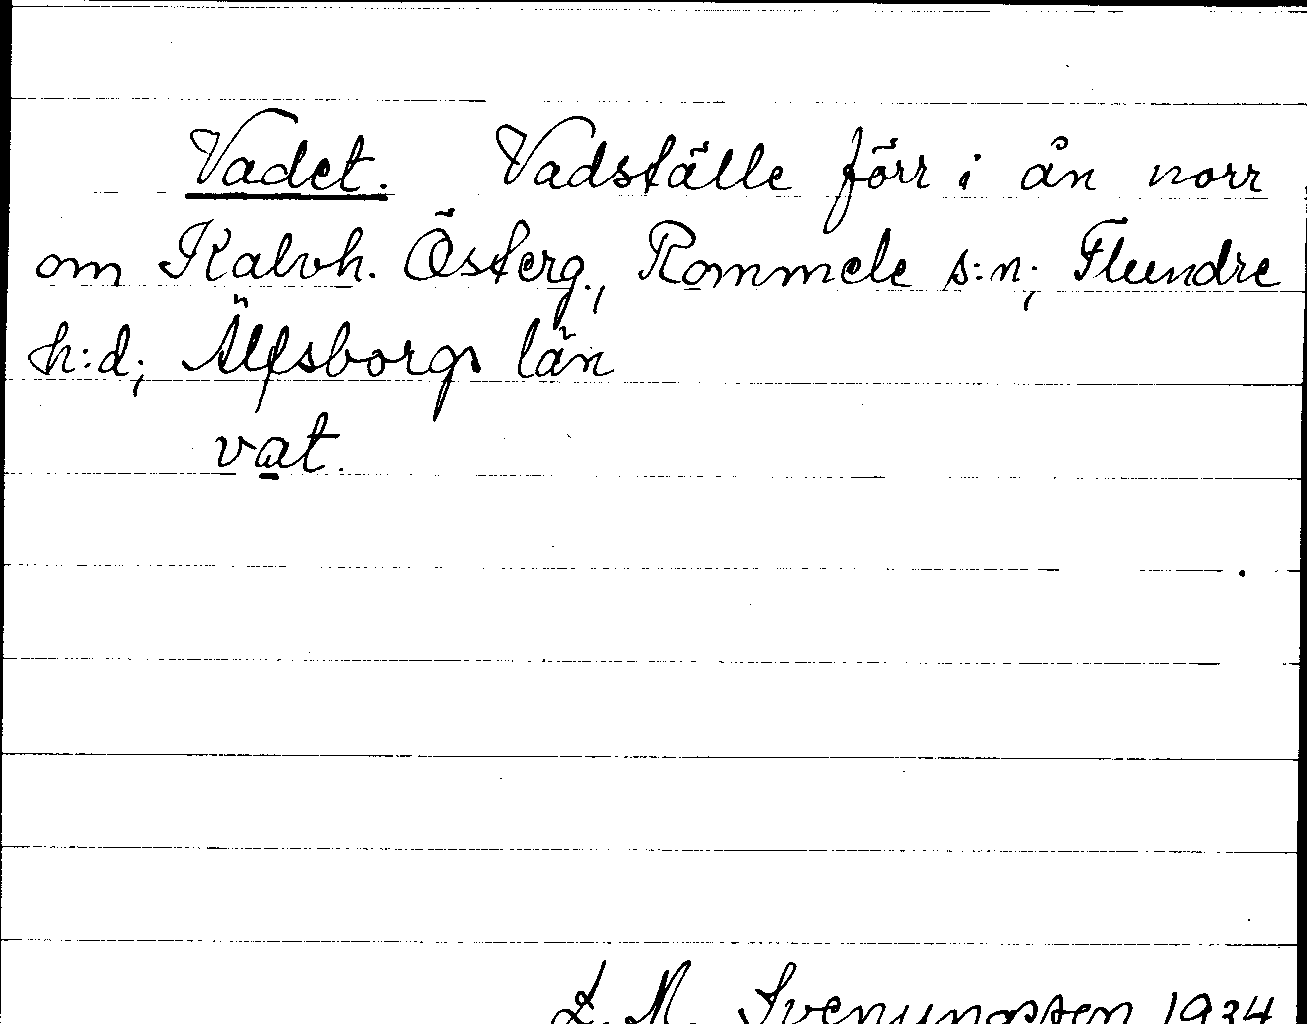 Vadet. Vadställe förr i ån norr
om Kalvh. Österg., Rommele s:n; Flundre
h:d; Älfsborgs län
vat.
L. M. Svenungsson 1934